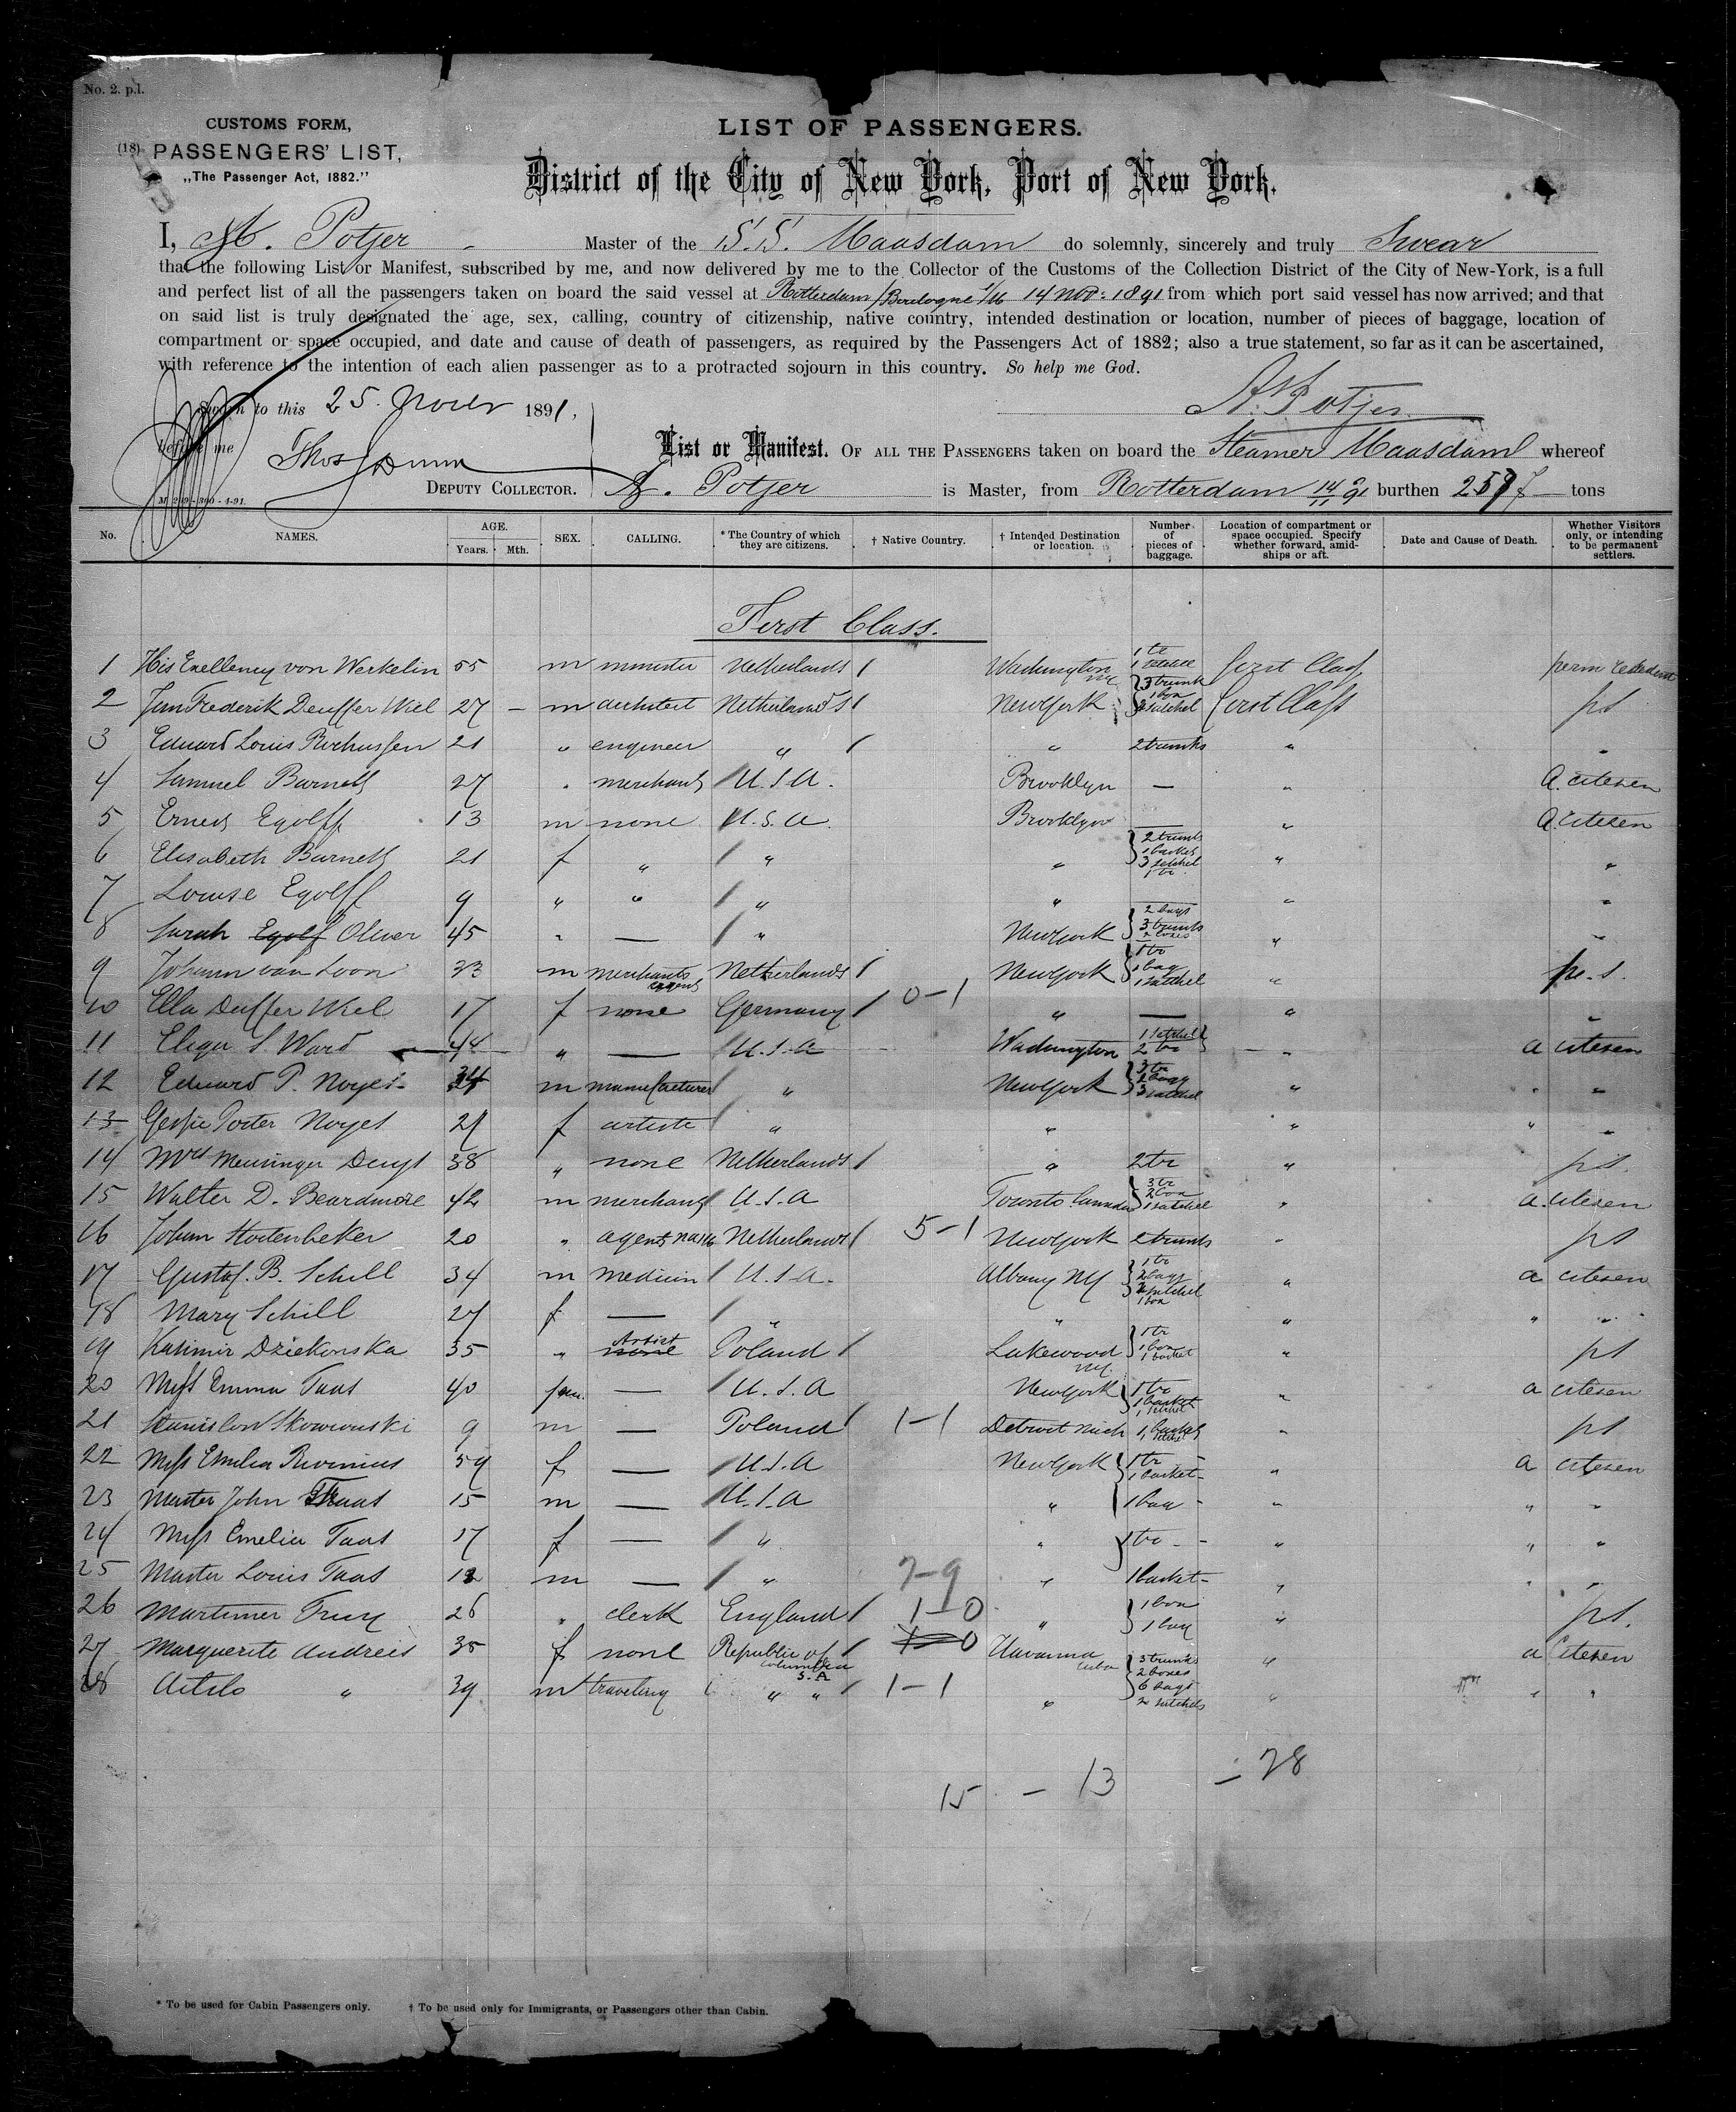 No. 2. p.l.
CUSTOMS FORM,
(18) PASSENGERS' LIST,
„The Passenger Act, 1882."
LIST OF PASSENGERS.
District of the City of New York, Port of New York.
I, A. Potjer Master of the S.S. Maasdam do solemnly, sincerely and truly Swear
that the following List or Manifest, subscribed by me, and now delivered by me to the Collector of the Customs of the Collection District of the City of New-York, is a full
and perfect list of all the passengers taken on board the said vessel at Rotterdam/Boulogne s/m 14 Nov: 1891 from which port said vessel has now arrived; and that
on said list is truly designated the age, sex, calling, country of citizenship, native country, intended destination or location, number of pieces of baggage, location of
compartment or space occupied, and date and cause of death of passengers, as required by the Passengers Act of 1882; also a true statement, so far as it can be ascertained,
with reference to the intention of each alien passenger as to a protracted sojourn in this country. So help me God.
Sworn to this 25 Novbr 1891, A. Potjer
before me Thos J Dunn
DEPUTY COLLECTOR.
List or Manifest. OF ALL THE PASSENGERS taken on board the Steamer Maasdam whereof
A. Potjer is Master, from Rotterdam 14/11 91 burthen tons
No. NAMES. AGE. Years. Mth. SEX. CALLING. * The Country of which they are citizens. † Native Country. † Intended Destination or location. Number of pieces of baggage. Location of compartment or space occupied. Specify whether forward, amidships or aft. Date and Cause of Death. Whether Visitors only, or intending to be permanent settlers.
First Class.
1 His Exellency von Weckelin 55 m minister Netherlands / Washington 1 tr 1 satchel first Class perm
2 Jan Frederik Deuffer Wiel 27 – m architect Netherlands / New York 3 trunk 1 box satchel first Class ps
3 Eduard Louis 21 " engineer " / " 2 trunks " "
4 Samuel Barnett 27 " merchant / U.S.A. Brooklyn — " A. citesen
5 Ernest Egolff 13 m none / U.S.A. Brooklyn " A. citesen
6 Elisabeth Barnett 21 f " / " " 2 trunks 1 basket 3 satchel 1 tr " "
7 Louise Egolff 9 " " / " " " "
8 Sarah Egolf Oliver 45 " — / " New York 2 bags 3 trunks 2 boxes " "
9 Johann van Loon 23 m merchants agent Netherlands / New York 1 tr 1 bag 1 satchel " pe. s.
10 Ella Deuffer Wiel 17 f none Germany / 0-1 " — " "
11 Eliza S. Ward 44 " — / U.S.A Washington 1 satchel 2 tr " a citesen
12 Eduard P. Noyes 34 m manufacturer / " New York 3 tr 2 bags 3 satchel " " "
13 Jessie Porter Noyes 27 f artiste / " " " " "
14 Mrs Mensinger Denyt 38 " none Netherlands / " 2 tr " ps.
15 Walter D. Beardmore 42 m merchant / U.S.A Toronto Canada 3 tr 2 box 1 satchel " a. citesen
16 Johan Hostenbeker 20 " agent Netherlands / 5-1 New York 2 trunks " ps
17 Gustaf. B. Schill 34 m medicin / U.S.A. Albany NY 1 tr 2 bags satchel 1 box " a citesen
18 Mary Schill 27 f — / " " " " "
19 Kasimir Dziekonska 35 " none Artist Poland / Lakewood 1 tr 1 box 1 basket " ps
20 Miss Emma Taas 40 fem. — / U.S.A New York 1 tr 1 basket 1 satchel " a citesen
21 Stanislow Skowronski 9 m — Poland / 1-1 Detroit Mich 1 basket " ps
22 Miss Emilia Rivinius 59 f — / U.S.A New York 1 tr 1 basket " a citesen
23 Master John Taas 15 m — / U.S.A " 1 bag " " "
24 Miss Emelia Taas 17 f — / " " 1 tr " " "
25 Master Louis Taas 12 m — / " 7-9 " 1 basket " " "
26 Mortimer 26 " clerk England / 1-0 " 1 box 1 bag " ps.
27 Marguerite Andreis 35 f none Republic of Columbia S.A / 1-0 Havanna Cuba 3 trunks 2 boxes 6 bags 2 satchels " a Citesen
28 Attilo " 39 m traveling " " / 1-1 " " " "
15 – 13 = 28
* To be used for Cabin Passengers only. † To be used only for Immigrants, or Passengers other than Cabin.